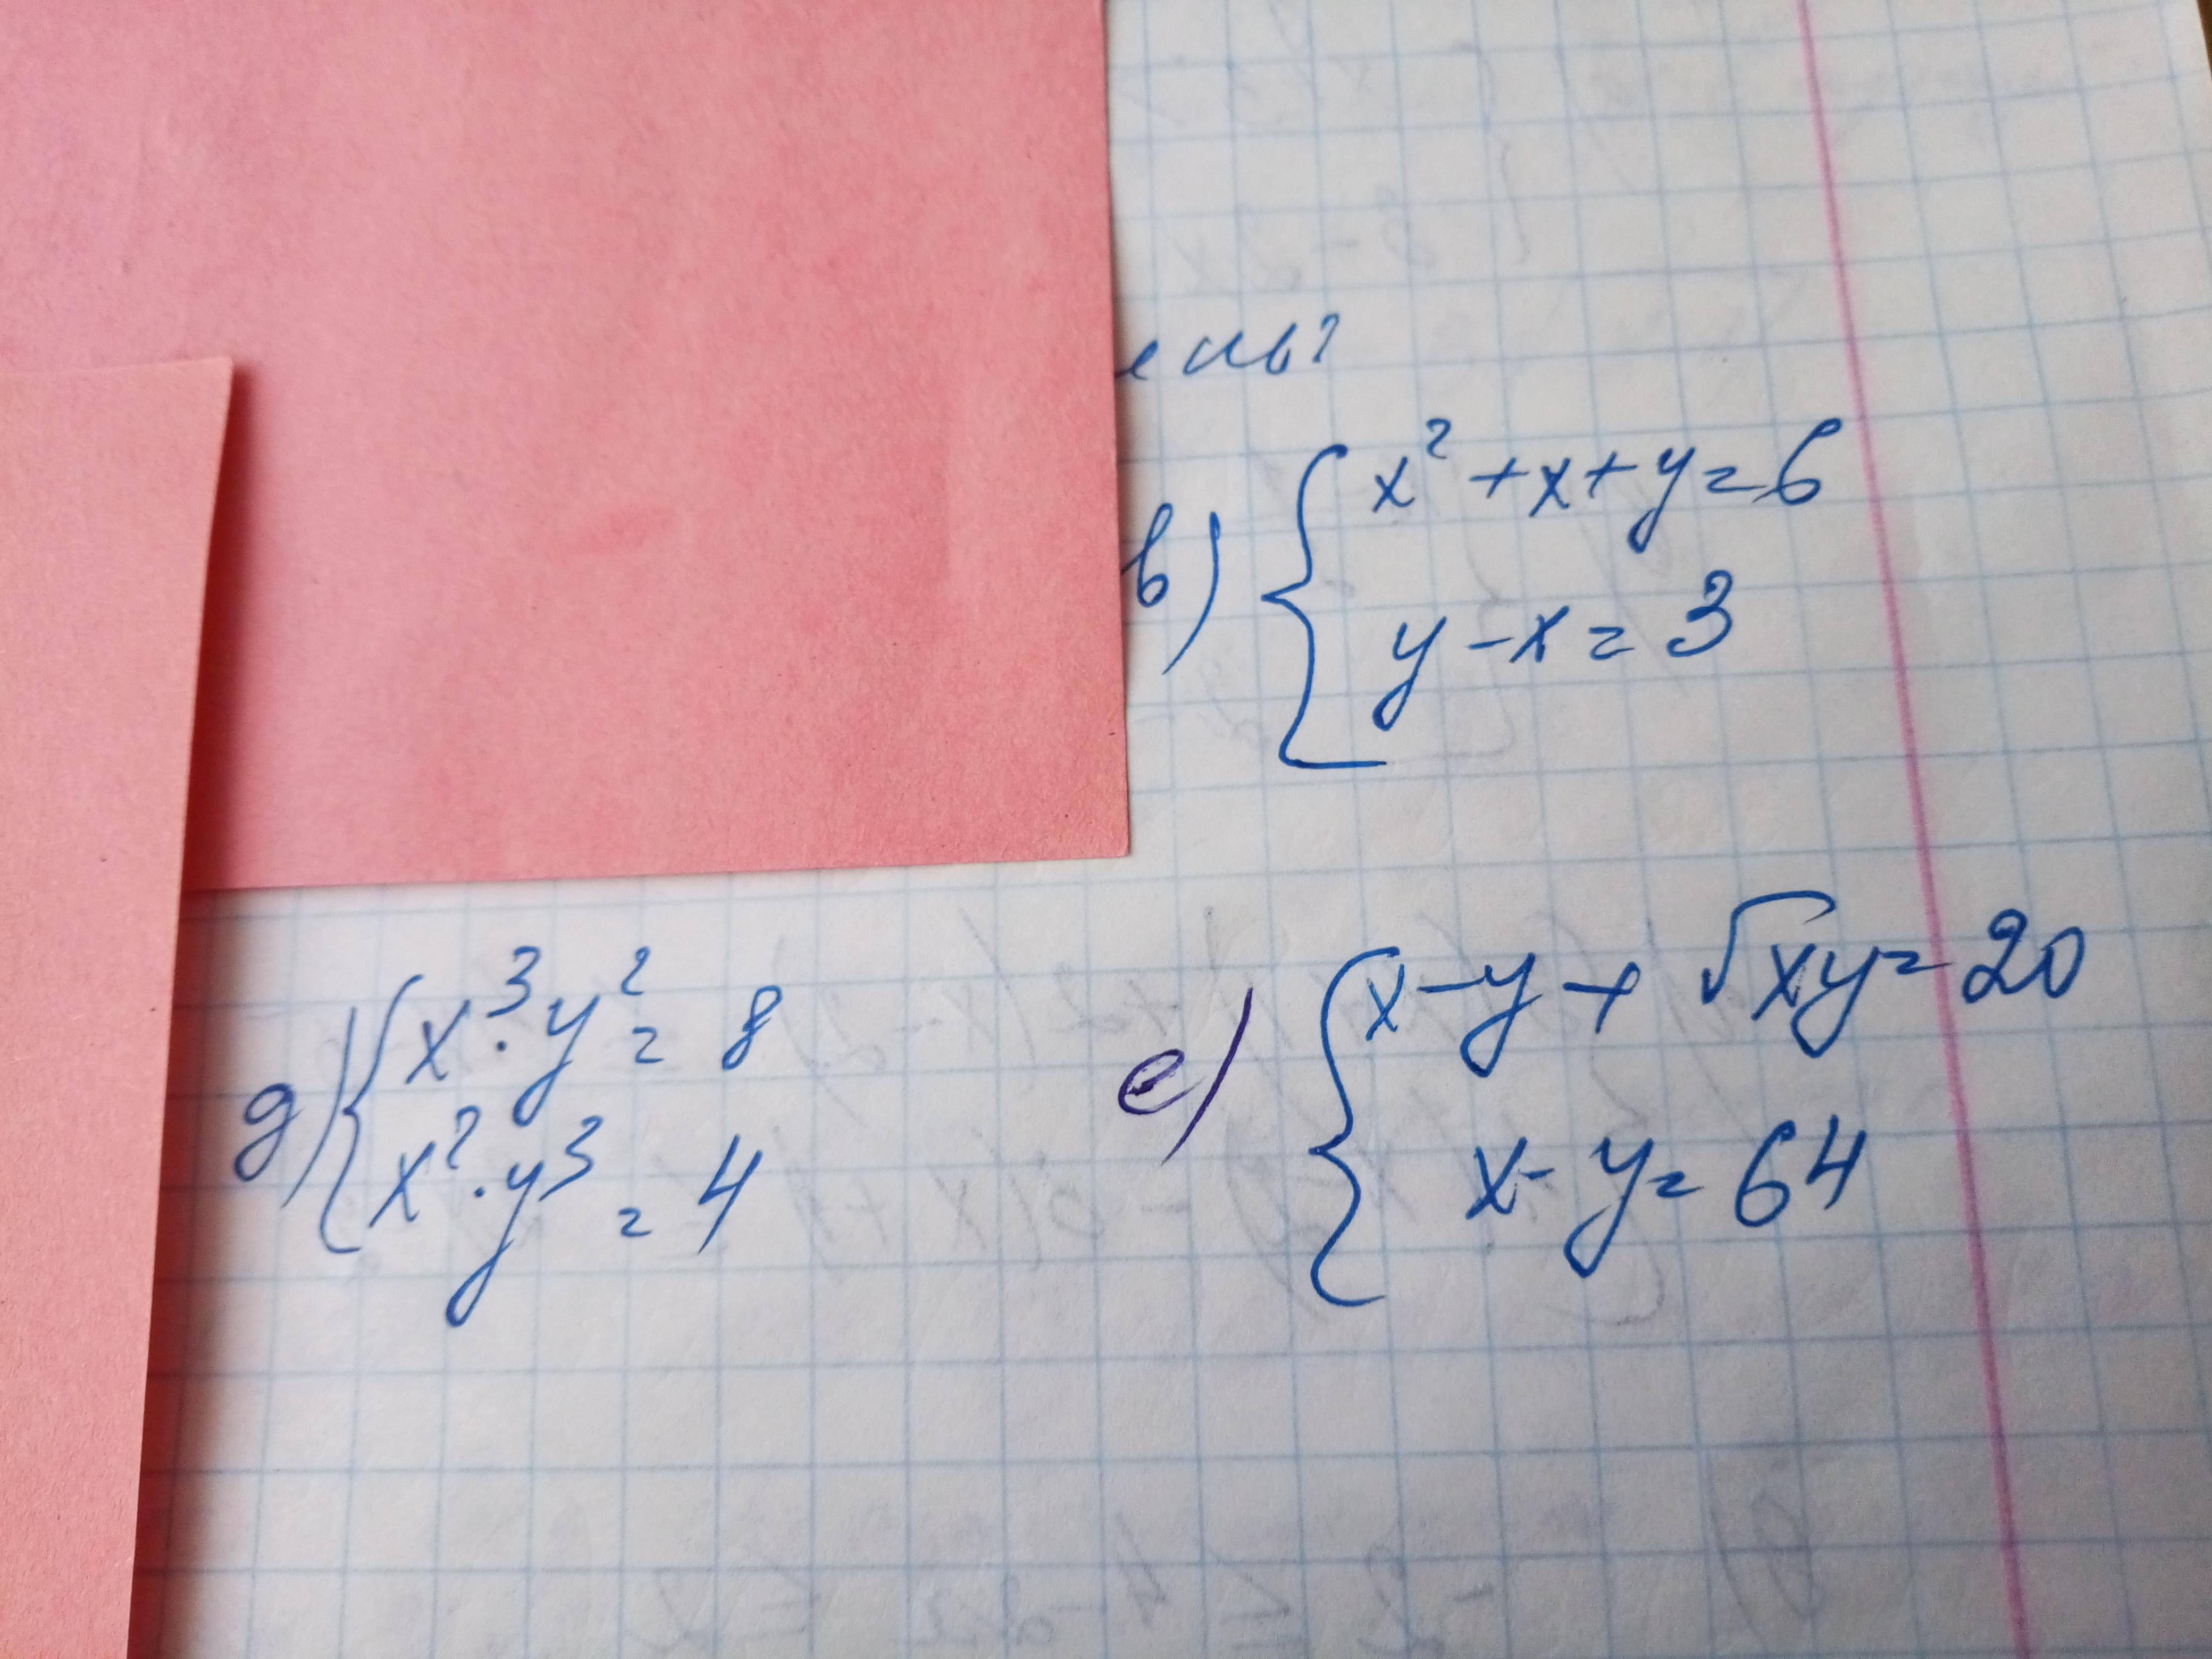 в) { x² + x + y = 6
y - x = 3
д) { x³ · y² = 8
x² · y³ = 4
е) { x - y + √xy = 20
x - y = 64